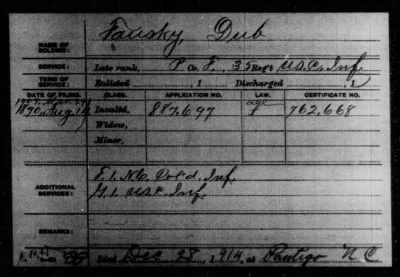 NAME OF SOLDIER: Fausky, Dub
SERVICE: Late rank, P Co. F, 35 Reg't U.S.C. Inf.
TERM OF SERVICE: Enlisted 1 Discharged , 1
DATE OF FILING. CLASS. APPLICATION NO. LAW. CERTIFICATE NO.
1890, Aug Invalid, 887,697 762,668
Widow,
Minor,
ADDITIONAL SERVICES: F. 1. N.C. Col'd. Inf.
G. 1. U.S.C. Inf.
REMARKS:
Died Dec 28, 1914, at Pantego N C